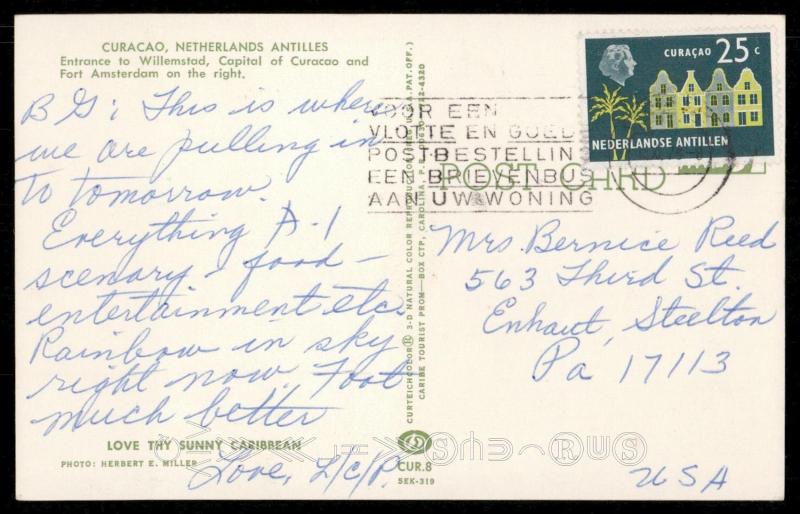 CURACAO, NETHERLANDS ANTILLES
Entrance to Willemstad, Capital of Curacao and
Fort Amsterdam on the right.
B G; This is where
we are pulling in
to tomorrow.
Everything A-1
scenary - food -
entertainment etc.
Rainbow in sky
right now. Foot
much better
LOVE THY SUNNY CARIBBEAN
PHOTO: HERBERT E. MILLER
Love, L/C/P.
CURTEICHCOLOR® 3-D NATURAL COLOR REPRODUCTION
CARIBE TOURIST PROM—BOX CTP, CAROLINA, P.
CUR.8
SEK-319
VOOR EEN
VLOTTE EN GOED
POSTBESTELLIN
EEN BRIEVENBUS
AAN UW WONING
CURAÇAO 25 C
NEDERLANDSE ANTILLEN
POST CARD
Mrs. Bernice Reed
563 Third St.
Enhaut, Steelton
Pa 17113
USA